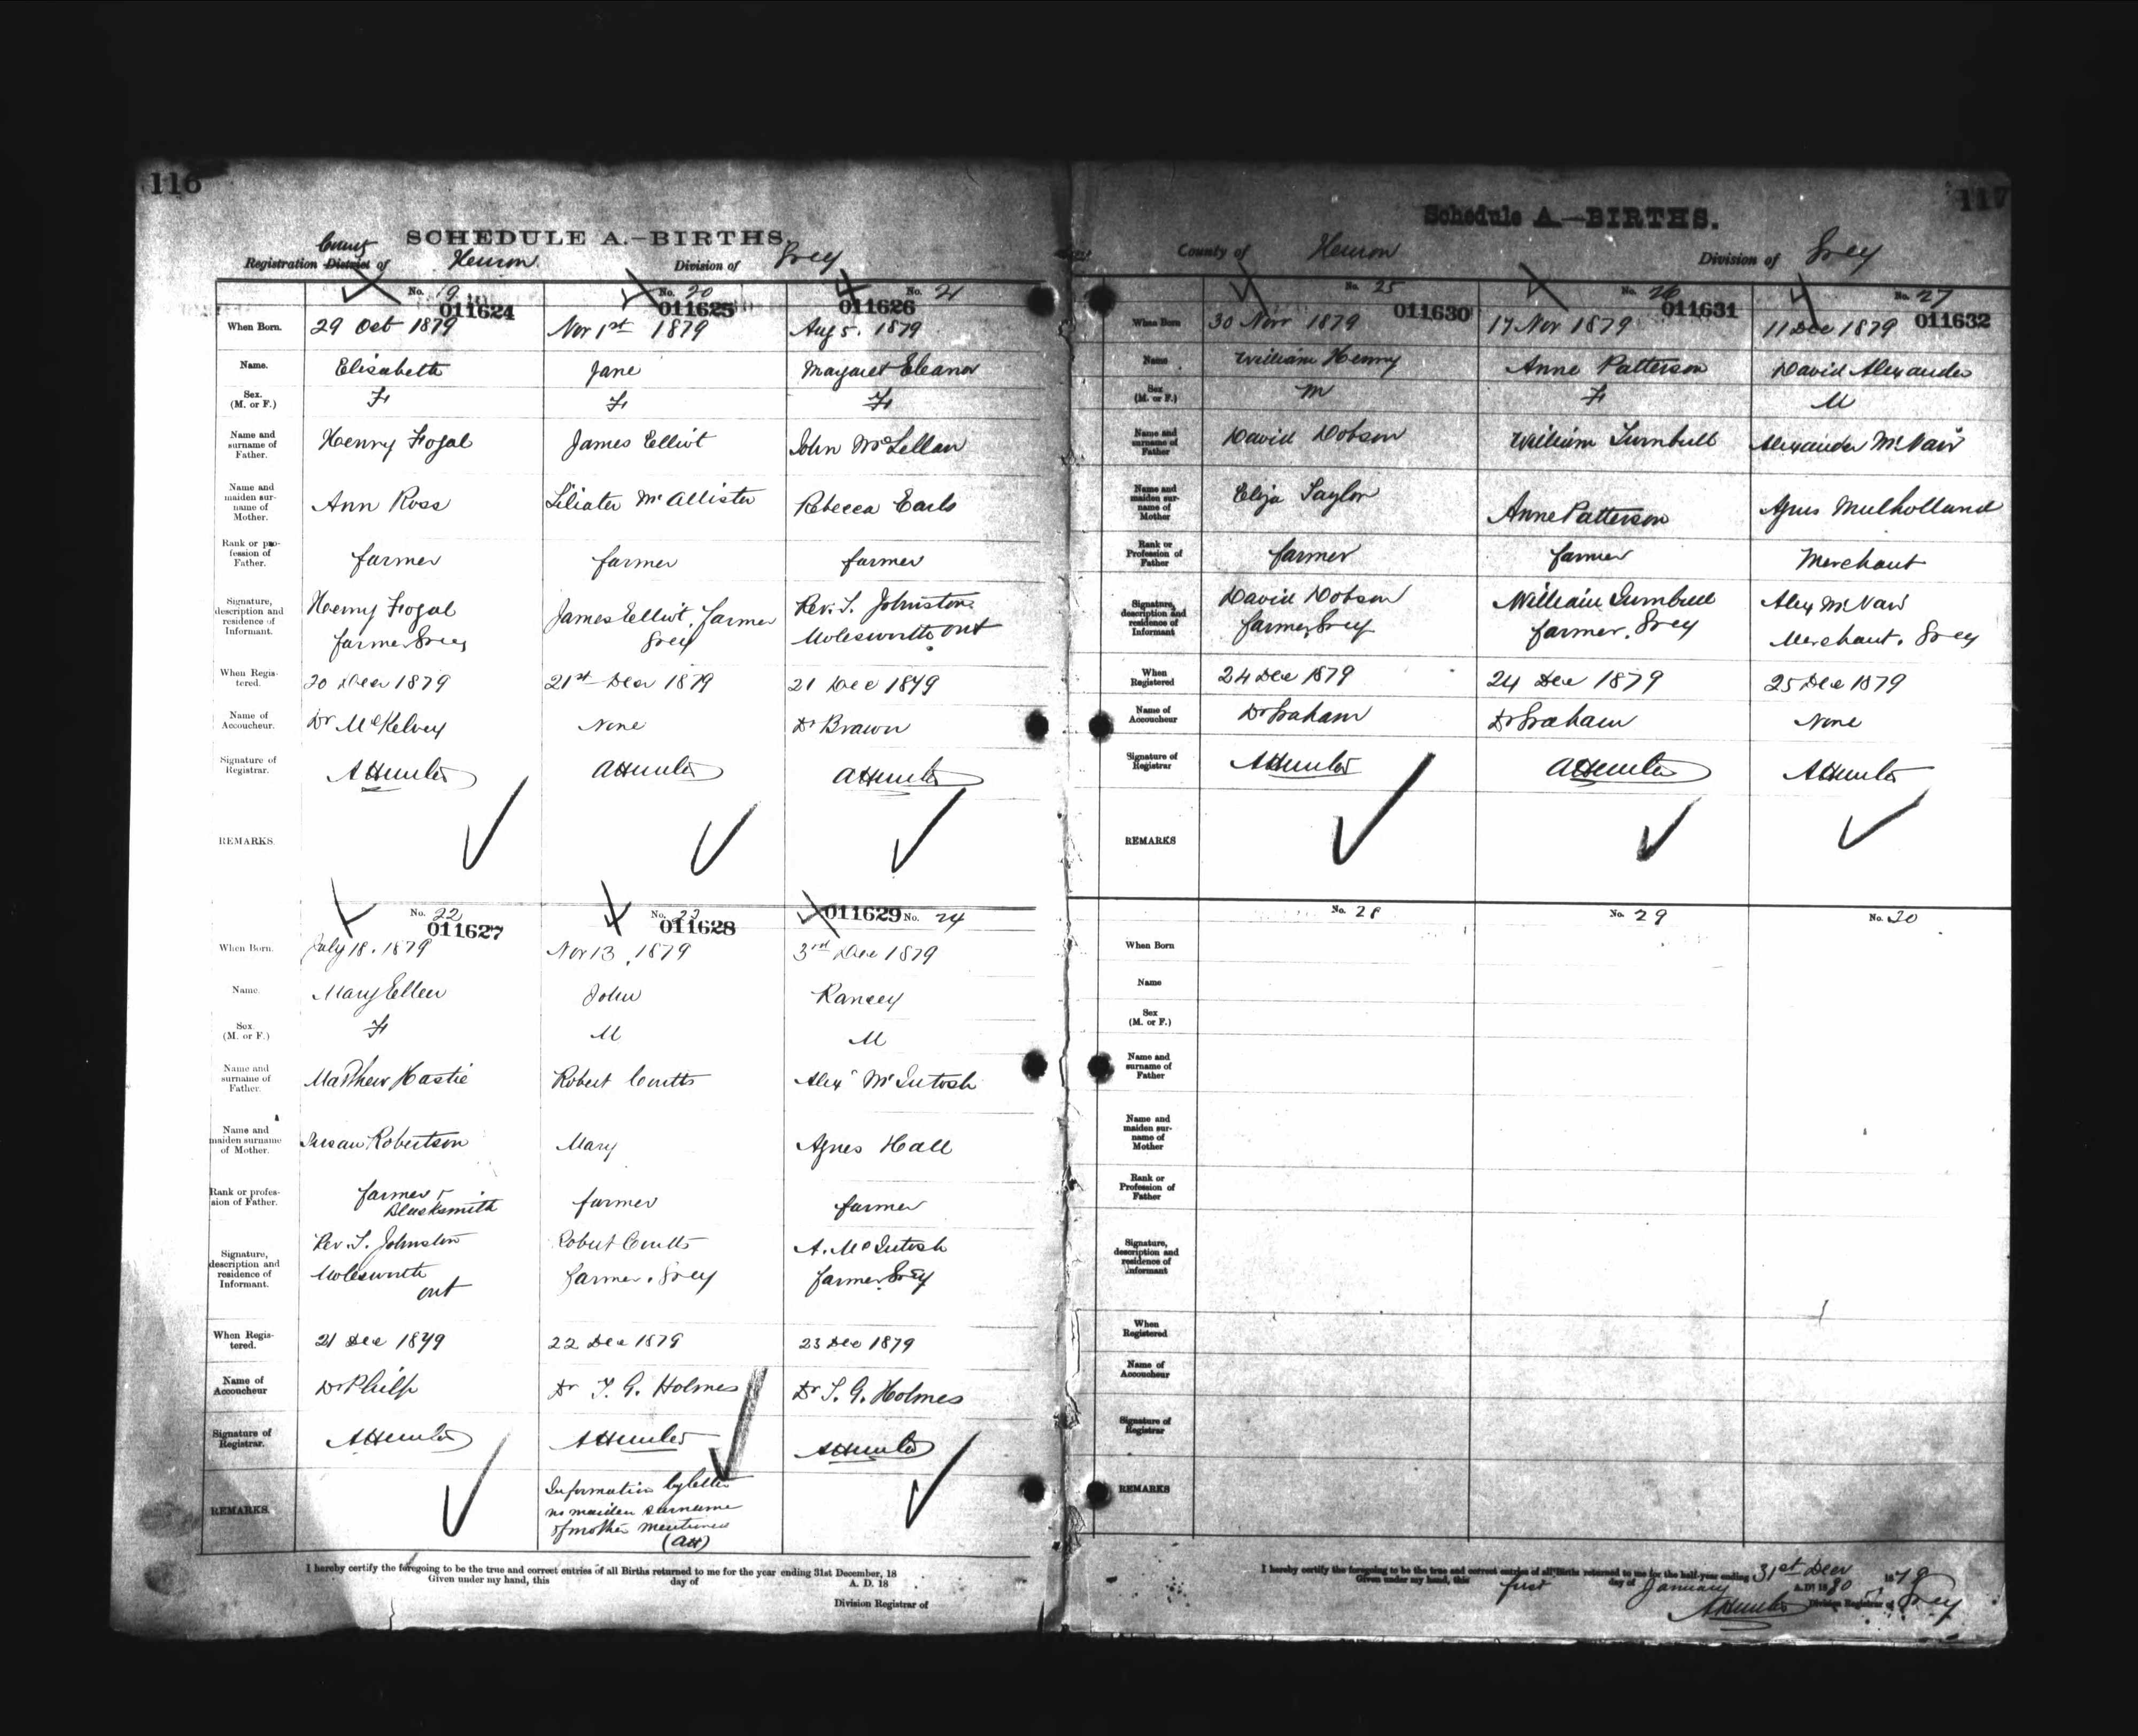 116
SCHEDULE A.—BIRTHS.
County
Registration District of Huron Division of Grey
No. 19 011624
When Born. 29 Oct 1879
Name. Elisabeth
Sex. (M. or F.) F
Name and surname of Father. Henry Fogal
Name and maiden surname of Mother. Ann Ross
Rank or profession of Father. farmer
Signature, description and residence of Informant. Henry Fogal
farmer Grey
When Registered. 20 Decr 1879
Name of Accoucheur. Dr McKelvey
Signature of Registrar. A Hunter
REMARKS.
No. 20 011625
Nov 1st 1879
Jane
F
James Elliot
McAllister
farmer
James Elliot, farmer
Grey
21st Decr 1879
None
A Hunter
No. 21 011626
Aug 5. 1879
Margaret Eleanor
F
John McLellan
Rebecca Earls
farmer
Rev. T. Johnston
Molesworth Ont
21 Dec 1879
Dr Brawn
A Hunter
No. 22 011627
When Born. July 18. 1879
Name. Mary Ellen
Sex. (M. or F.) F
Name and surname of Father. Matthew Hastie
Name and maiden surname of Mother. Susan Robertson
Rank or profession of Father. farmer +
Blacksmith
Signature, description and residence of Informant. Rev. T. Johnston
Molesworth
Ont
When Registered. 21 Dec 1879
Name of Accoucheur Dr Philp
Signature of Registrar. A Hunter
REMARKS.
No. 23 011628
Nov 13, 1879
John
M
Robert Coutts
Mary
farmer
Robert Coutts
farmer. Grey
22 Dec 1879
Dr T. G. Holmes
A Hunter
Information by letter
no maiden surname
of mother mentioned
(AH)
011629 No. 24
3rd Dec 1879
M
Alexr McIntosh
Agnes Hall
farmer
A. McIntosh
farmer Grey
23 Dec 1879
Dr T. G. Holmes
A Hunter
I hereby certify the foregoing to be the true and correct entries of all Births returned to me for the year ending 31st December, 18
Given under my hand, this day of A. D. 18
Division Registrar of
117
Schedule A.—BIRTHS.
County of Huron Division of Grey
No. 25 011630
When Born 30 Novr 1879
Name William Henry
Sex (M. or F.) M
Name and surname of Father David Dobson
Name and maiden surname of Mother Eliza Taylor
Rank or Profession of Father farmer
Signature, description and residence of Informant David Dobson
farmer Grey
When Registered 24 Dec 1879
Name of Accoucheur Dr Graham
Signature of Registrar A Hunter
REMARKS
No. 26 011631
17 Nov 1879
Anne Patterson
F
William Turnbull
Anne Patterson
farmer
William Turnbull
farmer. Grey
24 Dec 1879
Dr Graham
A Hunter
No. 27
11 Dec 1879 011632
David Alexander
M
Alexander McNair
Agnes Mulholland
Merchant
Alex McNair
Merchant. Grey
25 Dec 1879
None
A Hunter
No. 28 No. 29 No. 30
When Born
Name
Sex (M. or F.)
Name and surname of Father
Name and maiden surname of Mother
Rank or Profession of Father
Signature, description and residence of Informant
When Registered
Name of Accoucheur
Signature of Registrar
REMARKS
I hereby certify the foregoing to be the true and correct entries of all Births returned to me for the half-year ending 31st Decr 1879
Given under my hand, this first day of January A.D. 1880
A Hunter Division Registrar of Grey